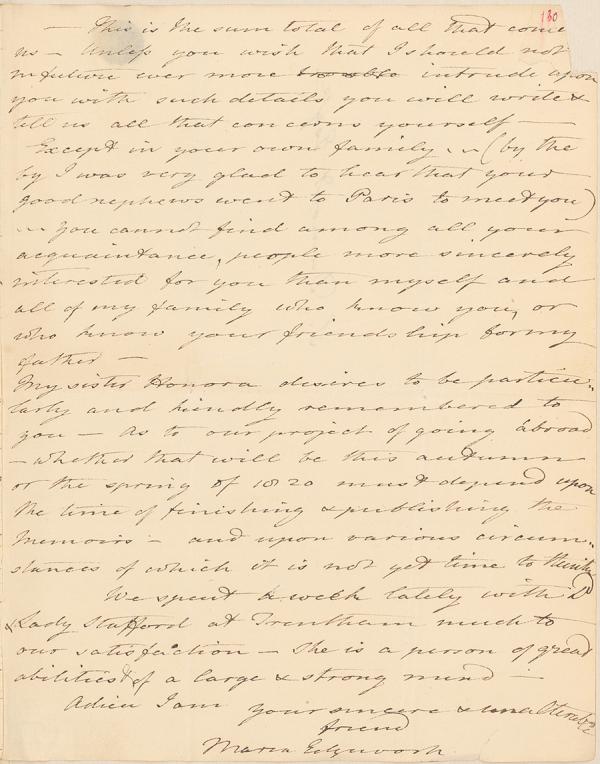 130
— This is the sum total of all that come
us — Unless you wish that I should not
in future ever more trouble intrude upon
you with such details you will write &
tell us all that concerns yourself —
Except in your own family .. (by the
by I was very glad to hear that your
good nephews went to Paris to meet you)
... you cannot find among all your
acquaintance, people more sincerely
interested for you than myself and
all of my family who know you, or
who know your friendship for my
father —
My sister Honora desires to be particu,,
larly and kindly remembered to
you — As to our project of going abroad
— whether that will be this autumn
or the spring of 1820 must depend upon
the time of finishing & publishing the
Memoirs — and upon various circum,,
stances of which it is not yet time to think
We spent a week lately with Ld
& Lady Stafford at Trentham much to
our satisfaction — She is a person of great
abilities & of a large & strong mind —
Adieu I am your sincere & unalterable
friend
Maria Edgeworth